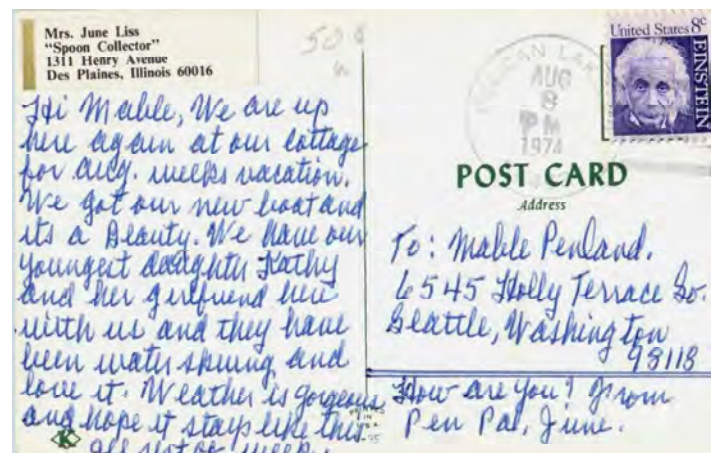 Mrs. June Liss
"Spoon Collector"
1311 Henry Avenue
Des Plaines, Illinois 60016
50¢
United States 8¢
EINSTEIN
AUG
8
PM
1974
Hi Mable, We are up
here again at our cottage
for aug. weeks vacation.
We got our new boat and
its a Beauty. We have our
youngest daughter Kathy
and her girlfriend here
with us and they have
been water skiing and
love it. Weather is gorgeous
and hope it stays like this
all rest of week.
POST CARD
Address
To: Mable Penland.
6545 Holly Terrace So.
Seattle, Washington
98118
How are you? From
Pen Pal, June.
K